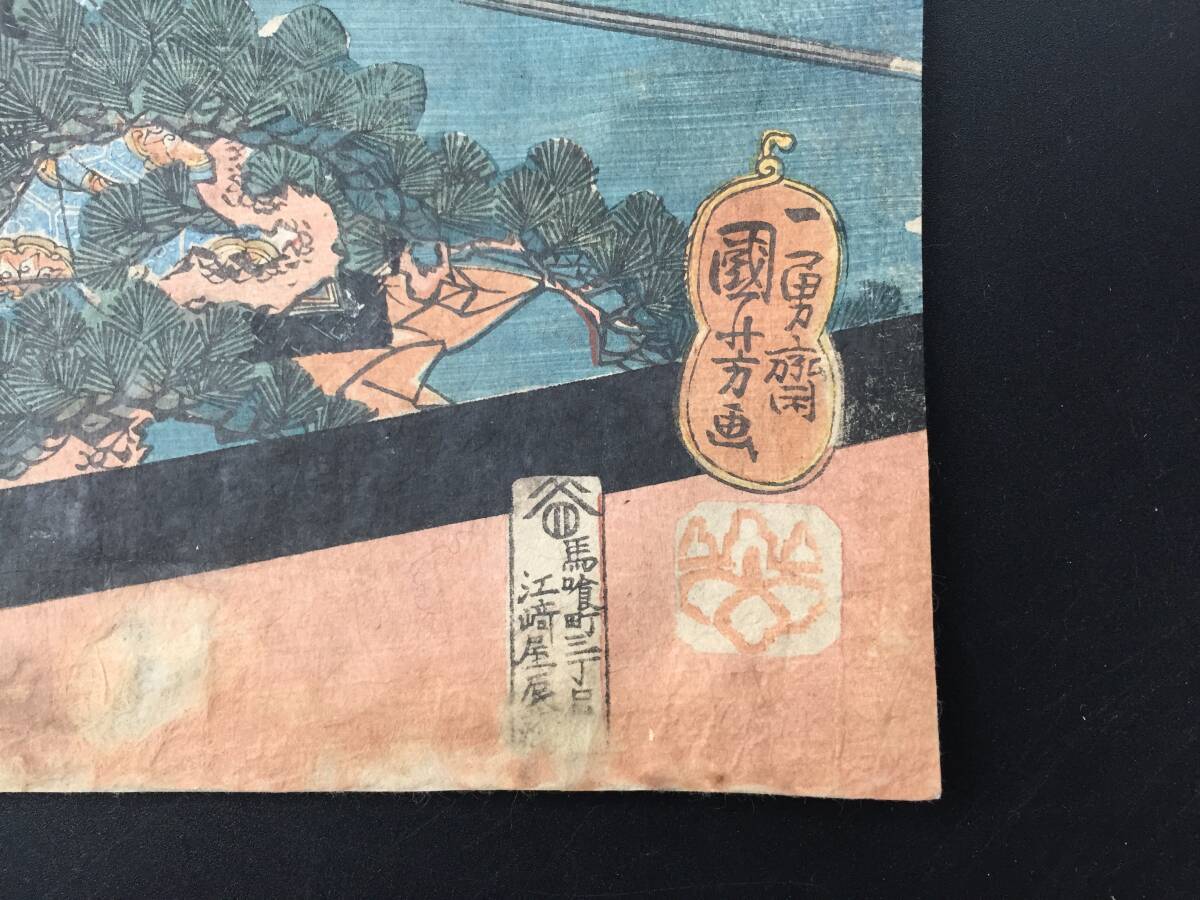 一勇齋
國芳画
馬喰町三丁目
江﨑屋辰